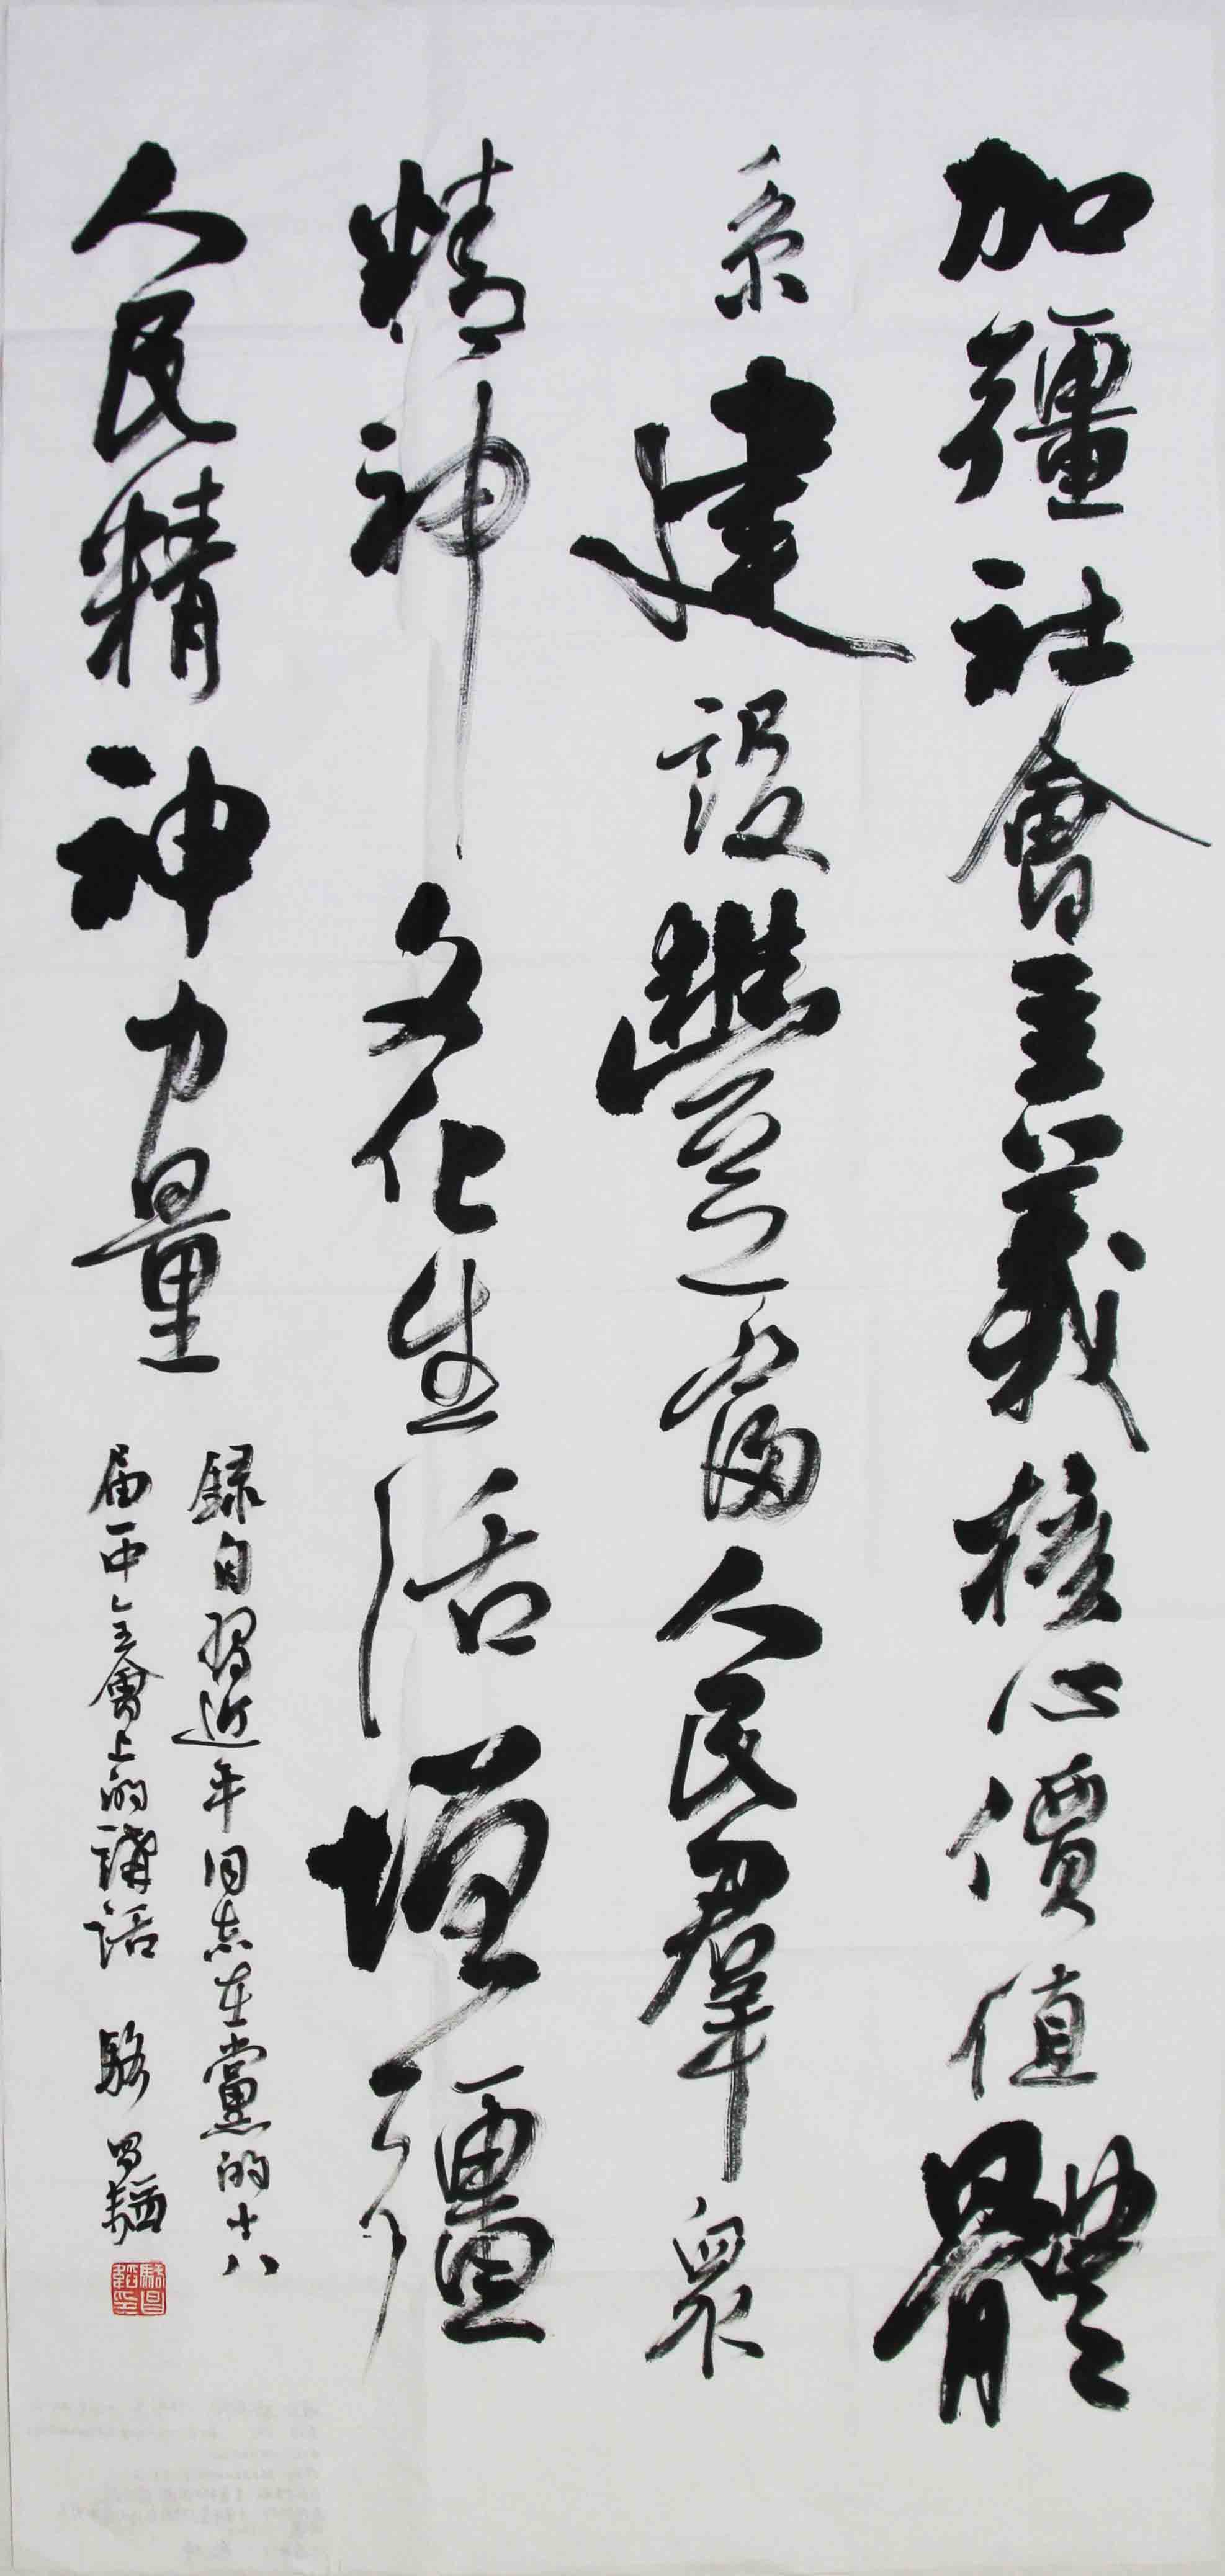 加彊社會主義核心價值體
系建設豐富人民羣衆
精神文化生活增彊
人民精神力量
録自習近平同志在黨的十八
届一中全會上的講話 駱昌韜
駱昌韜印